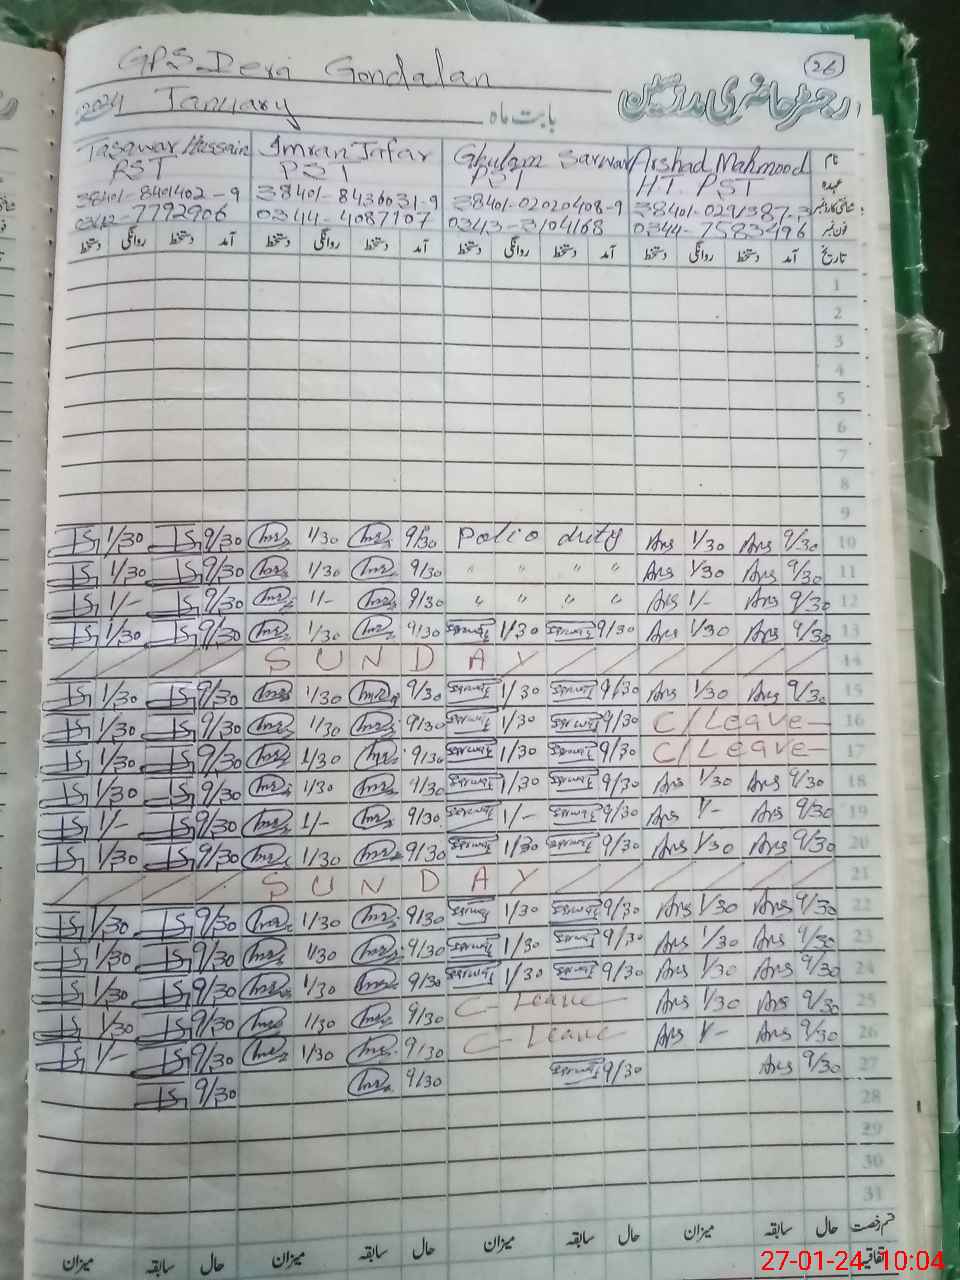 26
GPS Dera Gondalan
رجسٹر حاضری مدرسین
2024 January بابت ماہ
Tasawar Hussain Imran Jafar Ghulam Sarwar Arshad Mahmood نام
PST PST PST HT. PST عہدہ
38401-8401402-9 38401-8436031-9 38401-02020408-9 38401-0291387-3 شناختی کارڈ نمبر
0342-7792906 0344-4087107 0343-3104168 0344-7583496 فون نمبر
دستخط روانگی دستخط آمد دستخط روانگی دستخط آمد دستخط روانگی دستخط آمد دستخط روانگی دستخط آمد تاریخ
1
2
3
4
5
6
7
8
9
1/30 9/30 1/30 9/30 Polio duty Ars 1/30 Ars 9/30 10
1/30 9/30 1/30 9/30 " " " " Ars 1/30 Ars 9/30 11
1/- 9/30 1/- 9/30 " " " " Ars 1/- Ars 9/30 12
1/30 9/30 1/30 9/30 1/30 9/30 Ars 1/30 Ars 9/30 13
SUNDAY 14
1/30 9/30 1/30 9/30 1/30 9/30 Ars 1/30 Ars 9/30 15
1/30 9/30 1/30 9/30 1/30 9/30 C/Leave 16
1/30 9/30 1/30 9/30 1/30 9/30 C/Leave 17
1/30 9/30 1/30 9/30 1/30 9/30 Ars 1/30 Ars 9/30 18
1/- 9/30 1/- 9/30 1/- 9/30 Ars 1/- Ars 9/30 19
1/30 9/30 1/30 9/30 1/30 9/30 Ars 1/30 Ars 9/30 20
SUNDAY 21
1/30 9/30 1/30 9/30 1/30 9/30 Ars 1/30 Ars 9/30 22
1/30 9/30 1/30 9/30 1/30 9/30 Ars 1/30 Ars 9/30 23
1/30 9/30 1/30 9/30 1/30 9/30 Ars 1/30 Ars 9/30 24
1/30 9/30 1/30 9/30 C-Leave Ars 1/30 Ars 9/30 25
1/- 9/30 1/30 9/30 C-Leave Ars 1/- Ars 9/30 26
9/30 9/30 9/30 Ars 9/30 27
28
29
30
31
میزان سابقہ حال میزان سابقہ حال میزان سابقہ حال میزان سابقہ حال قسم رخصت
اتفاقیہ
27-01-24 10:04